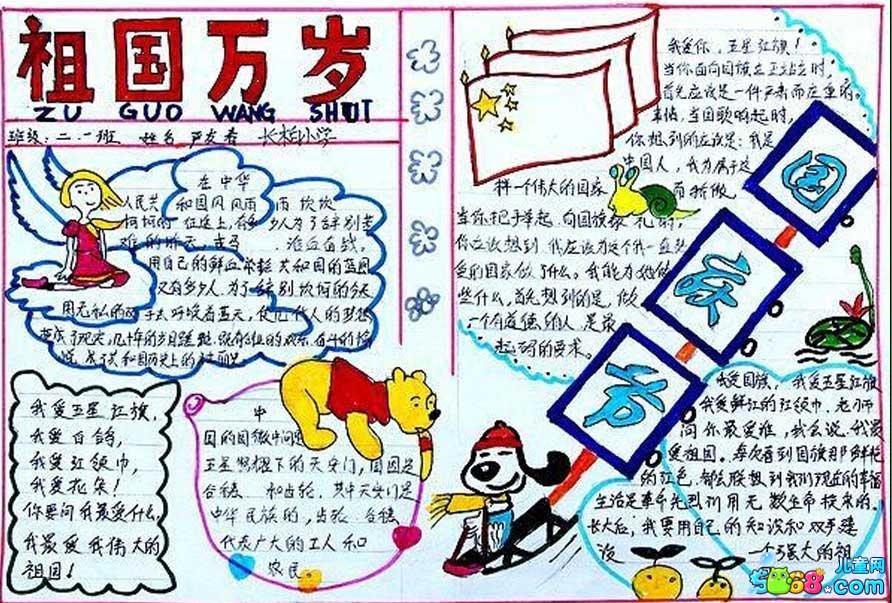 祖国万岁
ZU GUO WANG SHUI
班级:二.一班 姓名
在中华
人民共和国风风雨雨,坎坎
坷坷的征途上,有多少人为了
难的昨天
用自己的鲜血 共和国的蓝图
又有多少人,为了 坎坷的今天
用无私的双手去
我爱五星红旗,
我爱白鸽,
我爱红领巾,
我爱花朵!
你要问我最爱什么,
我最爱我伟大的
祖国!
中
国的国徽中间是
五星照耀下的天安门,周围是
谷穗 和齿轮,其中天安门是
中华民族的,齿轮、谷穗
代表广大的工人和
农民
我爱你,五星红旗!
当你面向国旗立正站立时,
首先应该是一件严肃而庄重的
事情,当国歌响起时,
你想到的应该是:我是
中国人,我为属于这
样一个伟大的国家 而骄傲
当你把手举起,向国旗敬礼时,
你应该想到,我应该为这个我一直热
爱的国家做了什么。我能为她做
些什么,首先想到的是,做
一个有道德的人是最
起码的要求。
国
庆
节
我爱国旗,我爱五星红旗
我爱鲜红的红领巾,老师
问你最爱谁,我会说,我最
爱祖国。每次看到国旗那鲜艳
的红色,都会联想到我们现在的幸福
生活是革命先烈们用无数生命换来的。
长大后,我要用自己的知识和双手建
设 一个强大的祖
5068 儿童网
.com